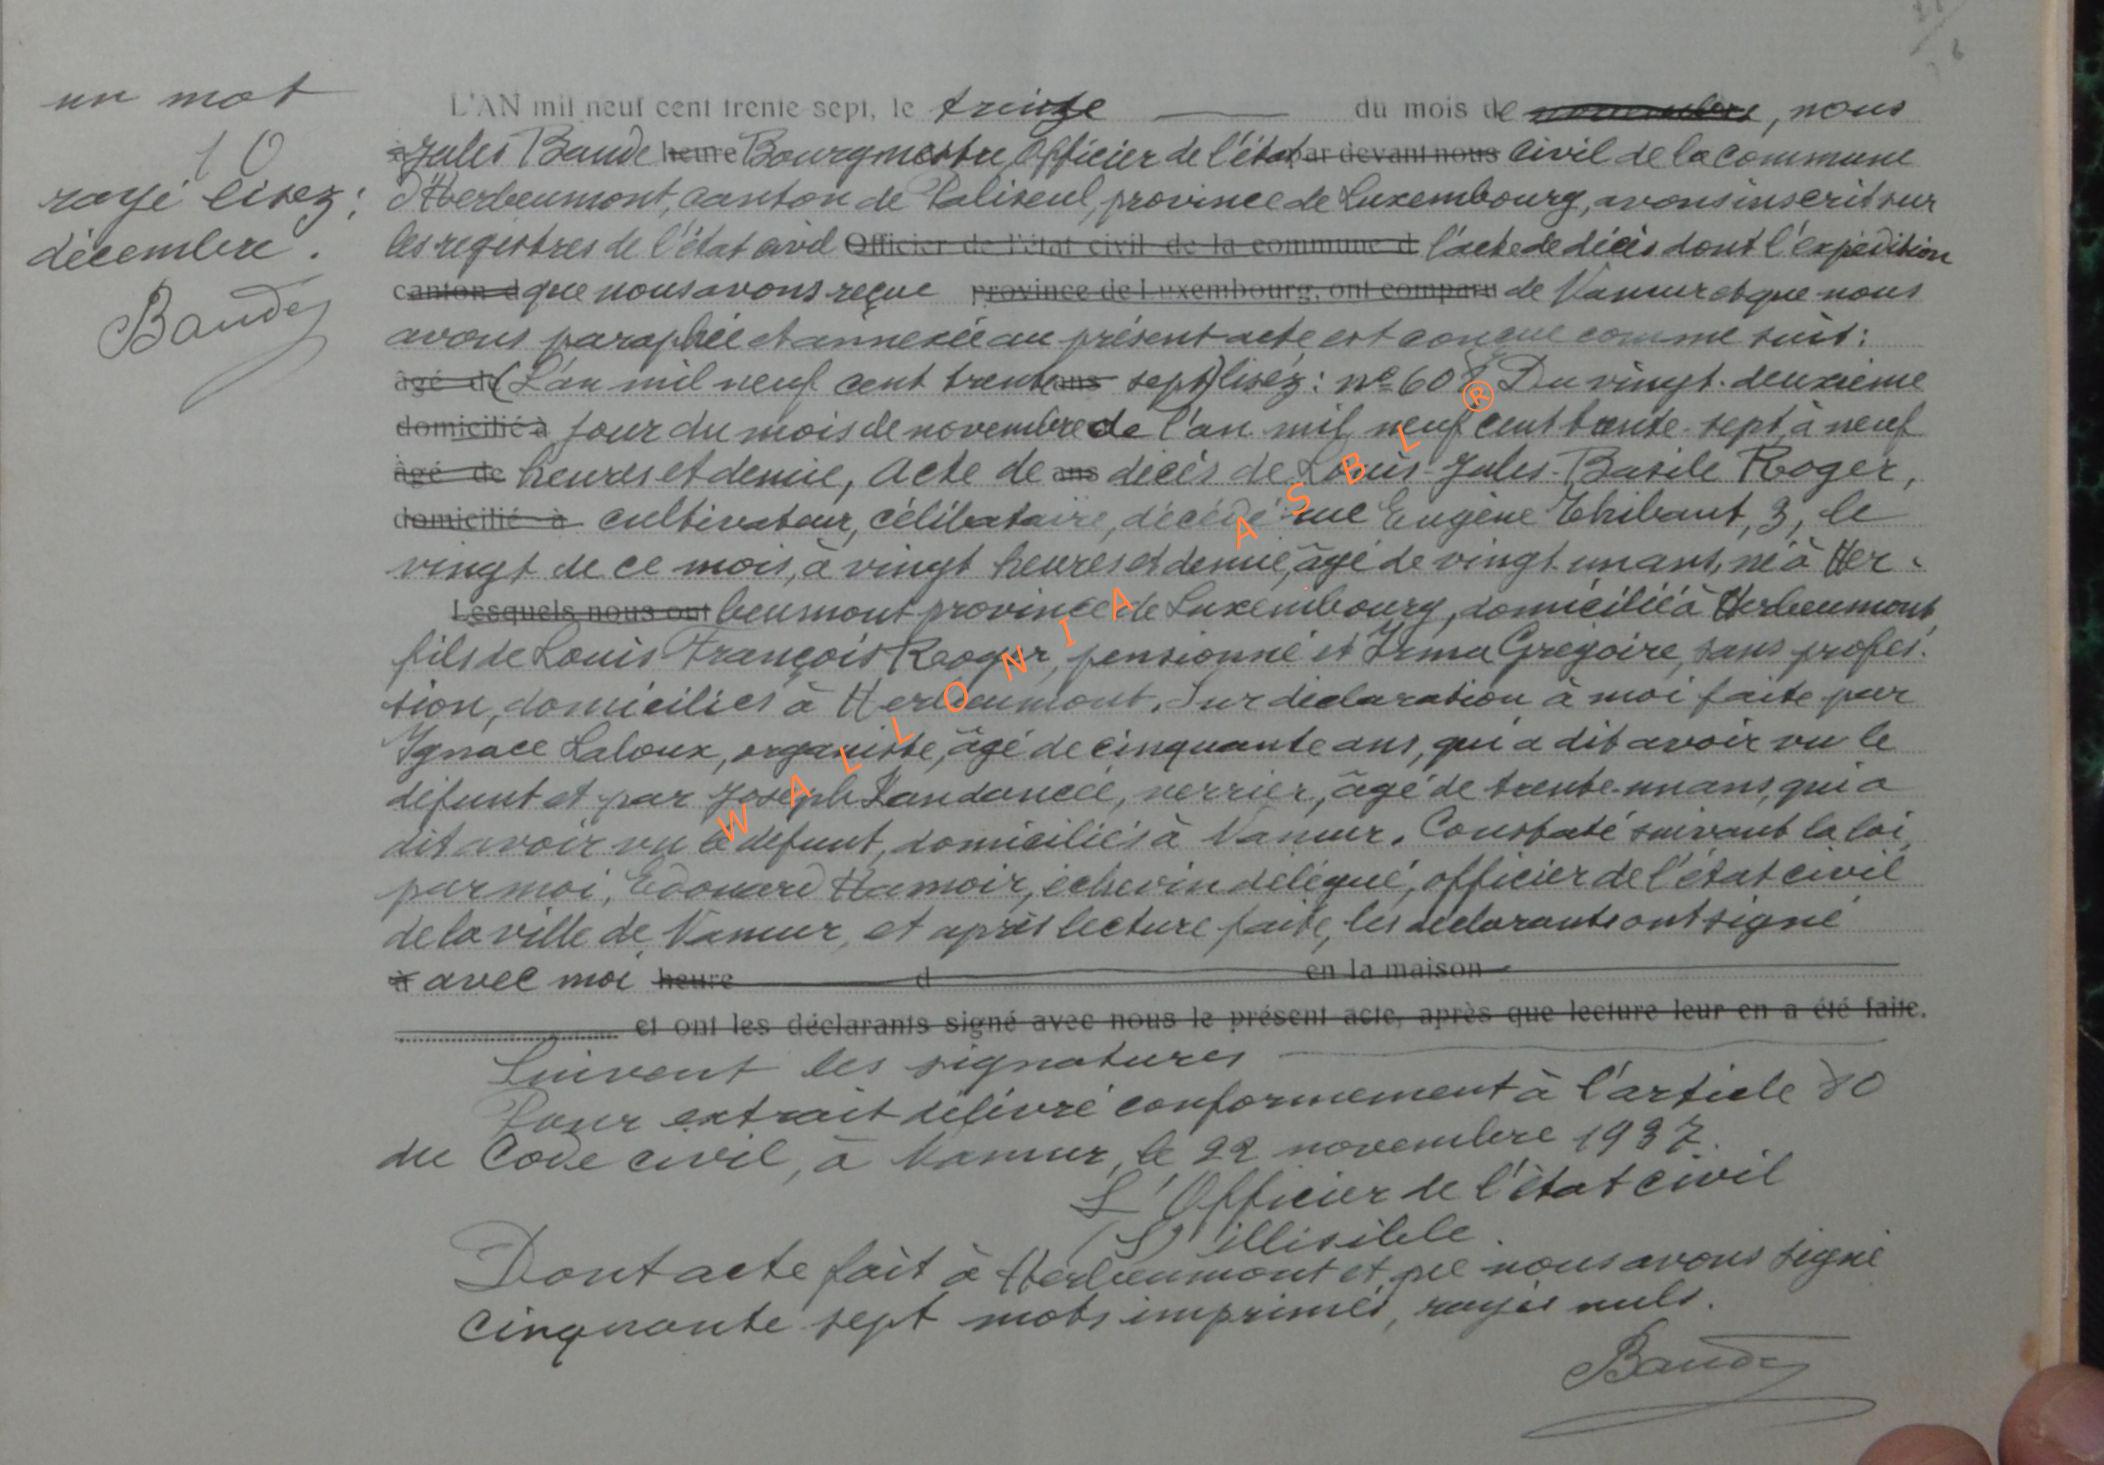 un mot
10
rayé lisez:
décembre.
Baudes
L'AN mil neuf cent trente-sept, le treize du mois de novembre, nous
à Jules Baude heure Bourgmestre Officier de l'état par devant nous civil de la commune
d'Herbeumont, canton de Paliseul, province de Luxembourg, avons inscrit sur
les registres de l'état civil Officier de l'état civil de la commune d l'acte de décès dont l'expédition
canton d que nous avons reçue province de Luxembourg, ont comparu de Namur et que nous
avons paraphée et annexée au présent acte est conçue comme suit:
âgé de (L'an mil neuf cent trente ans sept) lisez: n° 608 Du vingt-deuxième
domicilié à jour du mois de novembre de l'an mil neuf cent trente-sept à neuf
âgé de heures et demie, Acte de ans décès de Louis-Jules-Basile Roger,
domicilié à cultivateur, célibataire, décédé rue Eugène Thibaut, 3, le
vingt de ce mois, à vingt heures et demie, âgé de vingt un ans, né à Her-
Lesquels nous ont beumont province de Luxembourg, domicilié à Herbeumont,
fils de Louis François Roger, pensionné et Irma Grégoire, sans profes-
sion, domiciliés à Herbeumont. Sur déclaration à moi faite par
Ignace Laloux, organiste, âgé de cinquante ans, qui a dit avoir vu le
défunt et par Joseph, verrier, âgé de trente-un ans, qui a
dit avoir vu le défunt, domiciliés à Namur. Constaté suivant la loi,
par moi, Edouard Hamoir, échevin délégué, officier de l'état civil
de la ville de Namur, et après lecture faite, les déclarants ont signé
à avec moi heure d en la maison
et ont les déclarants signé avec nous le présent acte, après que lecture leur en a été faite.
Suivent les signatures
Pour extrait délivré conformément à l'article 80
du Code civil, à Namur, le 22 novembre 1937.
L'Officier de l'état civil
(S) illisible.
Dont acte fait à Herbeumont et que nous avons signé
Cinquante sept mots imprimés, rayés nuls.
Baudes
WALLONIA ASBL ®